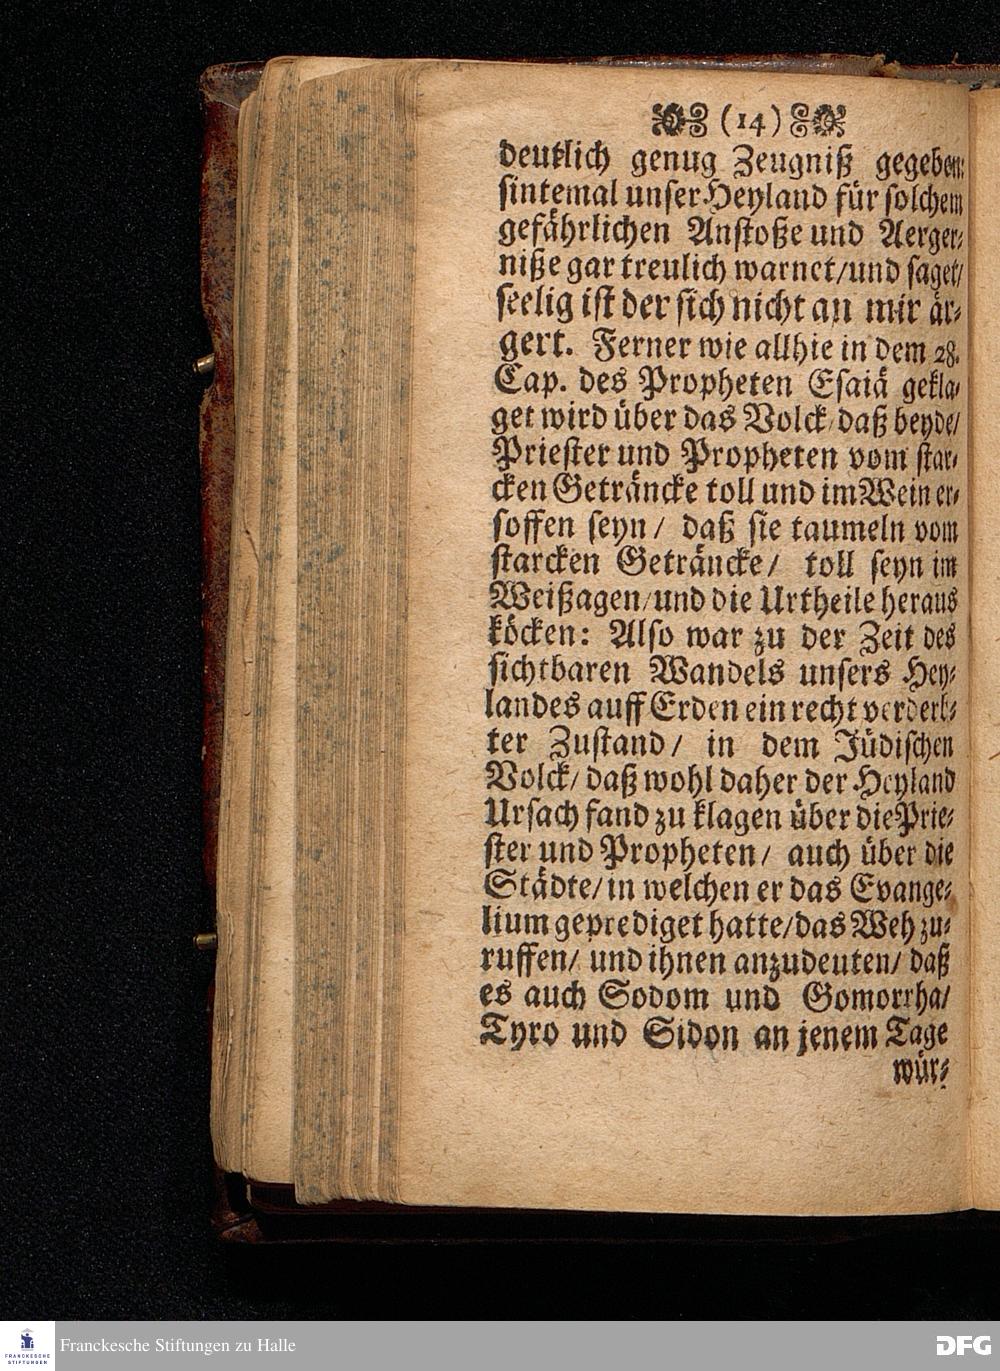 (14)
deutlich genug Zeugniß gegeben:
sintemal unser Heyland für solchem
gefährlichen Anstoße und Aerger-
niße gar treulich warnet/und saget/
seelig ist der sich nicht an mir är-
gert. Ferner wie allhie in dem 28.
Cap. des Propheten Esaiä gekla-
get wird über das Volck/daß beyde/
Priester und Propheten vom star-
cken Geträncke toll und im Wein er-
soffen seyn/ daß sie taumeln vom
starcken Geträncke/ toll seyn im
Weißagen/und die Urtheile heraus
köcken: Also war zu der Zeit des
sichtbaren Wandels unsers Hey-
landes auff Erden ein recht verderb-
ter Zustand/ in dem Jüdischen
Volck/ daß wohl daher der Heyland
Ursach fand zu klagen über die Prie-
ster und Propheten/ auch über die
Städte/in welchen er das Evange-
lium geprediget hatte/das Weh zu-
ruffen/ und ihnen anzudeuten/ daß
es auch Sodom und Gomorrha/
Tyro und Sidon an jenem Tage
wür-
FRANCKESCHE STIFTUNGEN
Franckesche Stiftungen zu Halle
DFG